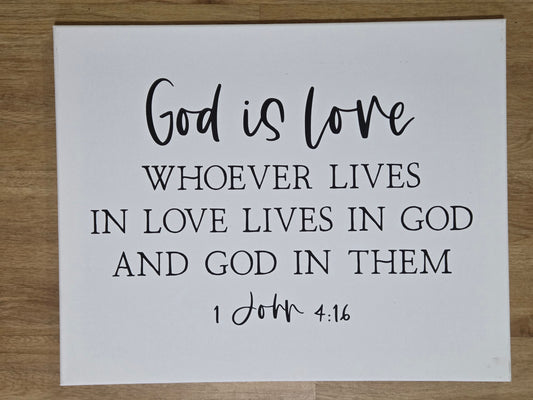 God is love
WHOEVER LIVES
IN LOVE LIVES IN GOD
AND GOD IN THEM
1 John 4:16